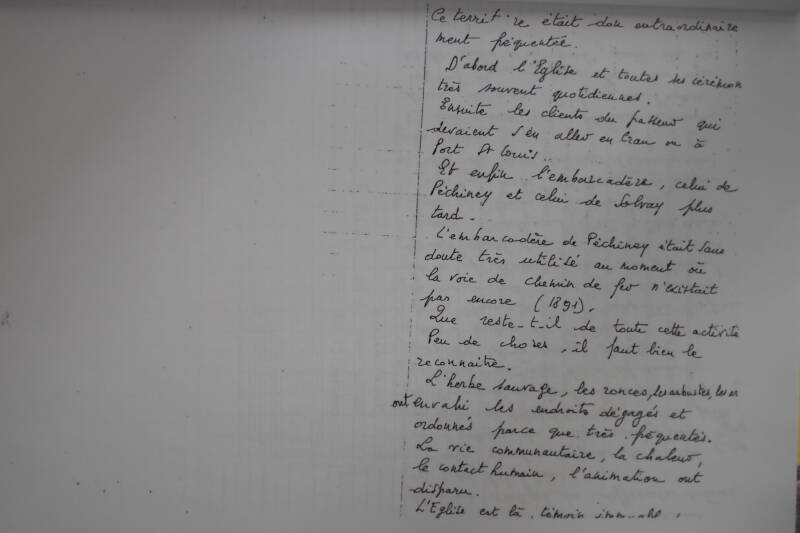 Ce territ re était don extraordinaire
ment fréquentée.
D'abord l'Eglise et toutes ses cérémon
très souvent quotidiennes.
Ensuite les clients du passeur qui
devaient s'en aller en Crau ou à
Port St Louis.
Et enfin l'embarcadère, celui de
Péchiney et celui de Solvay plus
tard.
L'embarcadère de Péchiney était sans
doute très utilisé au moment où
la voie de chemin de fer n'existait
pas encore (1891).
Que reste-t-il de toute cette activité
Peu de choses, il faut bien le
reconnaitre.
L'herbe sauvage, les ronces, les arbustes, les ar
ont envahi les endroits dégagés et
ordonnés parce que très fréquentés.
La vie communautaire, la chaleur,
le contact humain, l'animation ont
disparu.
L'Eglise est là, témoin